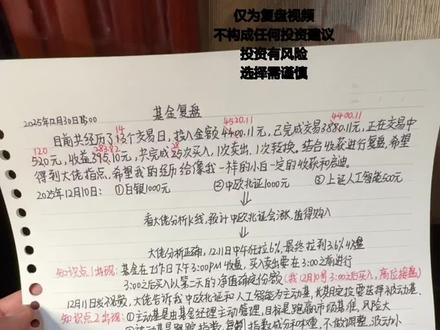 仅为复盘视频
不构成任何投资建议
投资有风险
选择需谨慎
2025年12月30日
基金复盘
14 4520.11 4400.11
目前共经历了13个交易日,投入金额4400.11元,已完成交易3880.11元,正在交易中
120 283.82 28
520元,收益395.10元,共完成25次买入,1次卖出,1次转换。结合收获进行复盘,希望
得到大佬指点,希望我的经历给像我一样的小白一定的收获和启迪。
2025年12月10日:①白银1000元 ②中欧北证1000元 ③上证人工智能500元
看大佬分析K线,预计中欧北证会涨,值得购入
大佬分析正确,12月11日中午狂拉6%,最终拉到3.6%
知识点1出现:基金在工作日下午3:00PM收盘,买入卖出要在3:00之前进行
3:00之后买入以第二天的净值确认份额(我12月10号3:00之后买入,高位接盘)
知识点2出现:①主动基是由基金经理主动管理,目标是跑赢市场基准,风险大